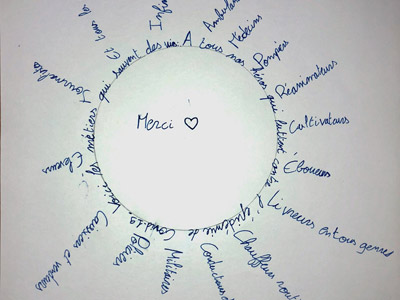 Merci ♡
A tous nos héros qui luttent contre l'épidémie de Covid-19, voici les métiers qui sauvent des vies:
Médecins
Pompiers
Réanimateurs
Cultivateurs
Éboueurs
Livreurs en tous genres
Chauffeurs
Militaires
Policiers
Caissiers et vendeurs
Éleveurs
Journalistes
Et tous